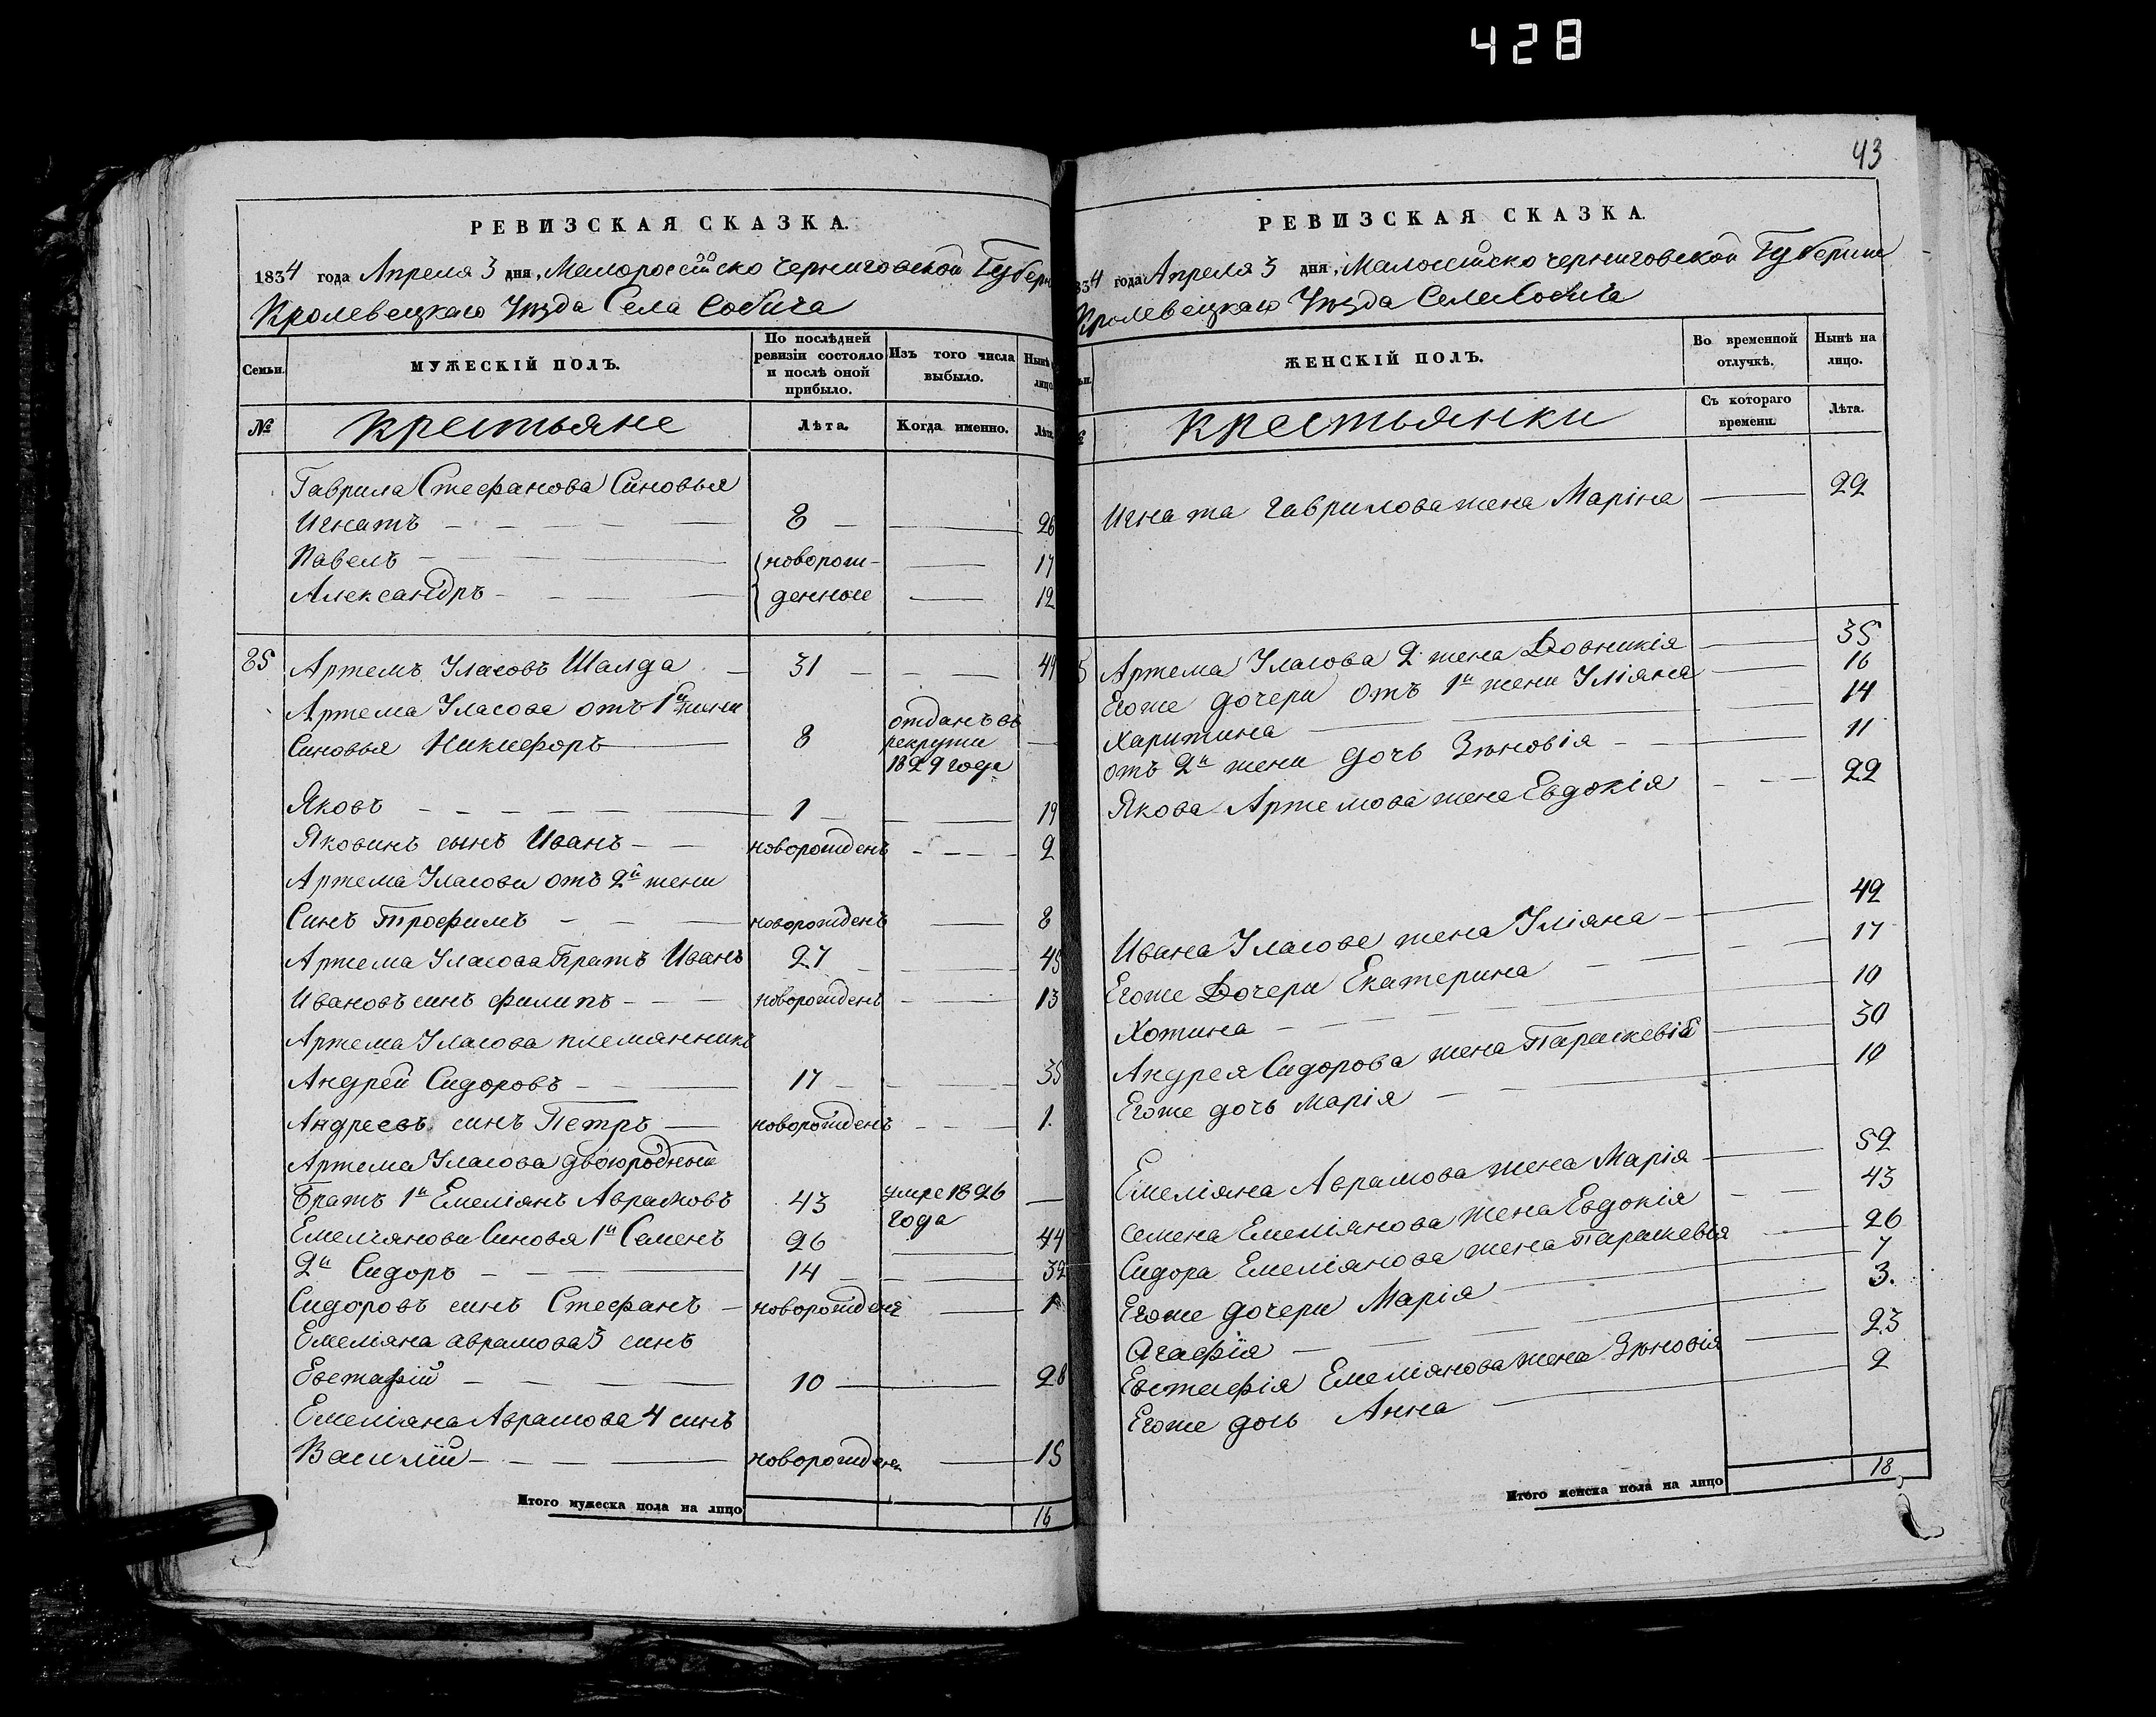 428
РЕВИЗСКАЯ СКАЗКА.
1834 года Апреля 3 дня, Малоросийско черниговской Губерн
Кролевецкаго Уезда Села Собича
Семьи.
МУЖЕСКІЙ ПОЛЪ.
По послѣдней ревизіи состояло и послѣ оной прибыло.
Изъ того числа выбыло.
Нынѣ
лицо
№
Крестьяне
Лѣта.
Когда именно.
Лѣта
Гаврила Стефанова Синовья
Игнатъ 8 26
Павелъ новорож- 17
Александръ денные 12
85 Артемъ Уласовъ Шалда 31 49
Артема Уласова отъ 1й жени
Синовья Никифоръ 8 отданъ въ рекрути 1829 года
Яковъ 1 19
Яковинъ сынъ Иванъ новорожденъ 2
Артема Уласова отъ 2й жени
Синъ Трофимъ новорожденъ 8
Артема Уласова Братъ Иванъ 27 45
Ивановъ синъ филипъ новорожденъ 13
Артема Уласова племянникъ
Андрей Сидоровъ 17 35
Андреевъ синъ Петръ новорожденъ 1.
Артема Уласова двоюродный
Братъ 1й Емеліянъ Аврамовъ 43 умре 1826 года
Емелчянови Синовя 1й Семенъ 26 44
2й Сидоръ 14 32
Сидоровъ синъ Стефанъ новорожденъ 1
Емеліяна аврамова 3 синъ
Евстафій 10 28
Емеліяна Аврамова 4 синъ
Василій новорожден 15
Итого мужеска пола на лицо 16
43
РЕВИЗСКАЯ СКАЗКА.
34 года Апреля 3 дня, Малосийско черниговской Губернии
Кролевецкаго Уезда Села Собича
ЖЕНСКІЙ ПОЛЪ.
Во временной отлучкѣ.
Нынѣ на лицо.
Крестьянки
Съ котораго времени.
Лѣта.
Игната гаврилова жена Маріна 22
5 Артема Уласова 2 жена Довникія 35
Егоже дочери отъ 1й жени Уліяна 16
Харитина 14
отъ 2й жени дочь Зѣновія 11
Якова Артемова жена Евдокія 22
Ивана Уласове жена Уліяна 42
Егоже Дочери Екатерина 17
Хотина 10
Андрея Сидорова жена Параскевія 30
Егоже дочь Марія 10
Емеліяна Аврамова жена Марія 52
семена Емеліянова жена Евдокія 43
Сидора Емеліянова жена Параскевія 26
Егоже дочери Марія 7
Агафія 3.
Евстафія Емеліянова жена Зѣновія 23
Егоже дочь Анна 2
Итого женска пола на лицо 18